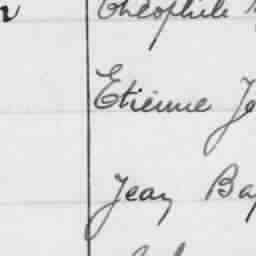 Théophile
Etienne Je
Jean Bap